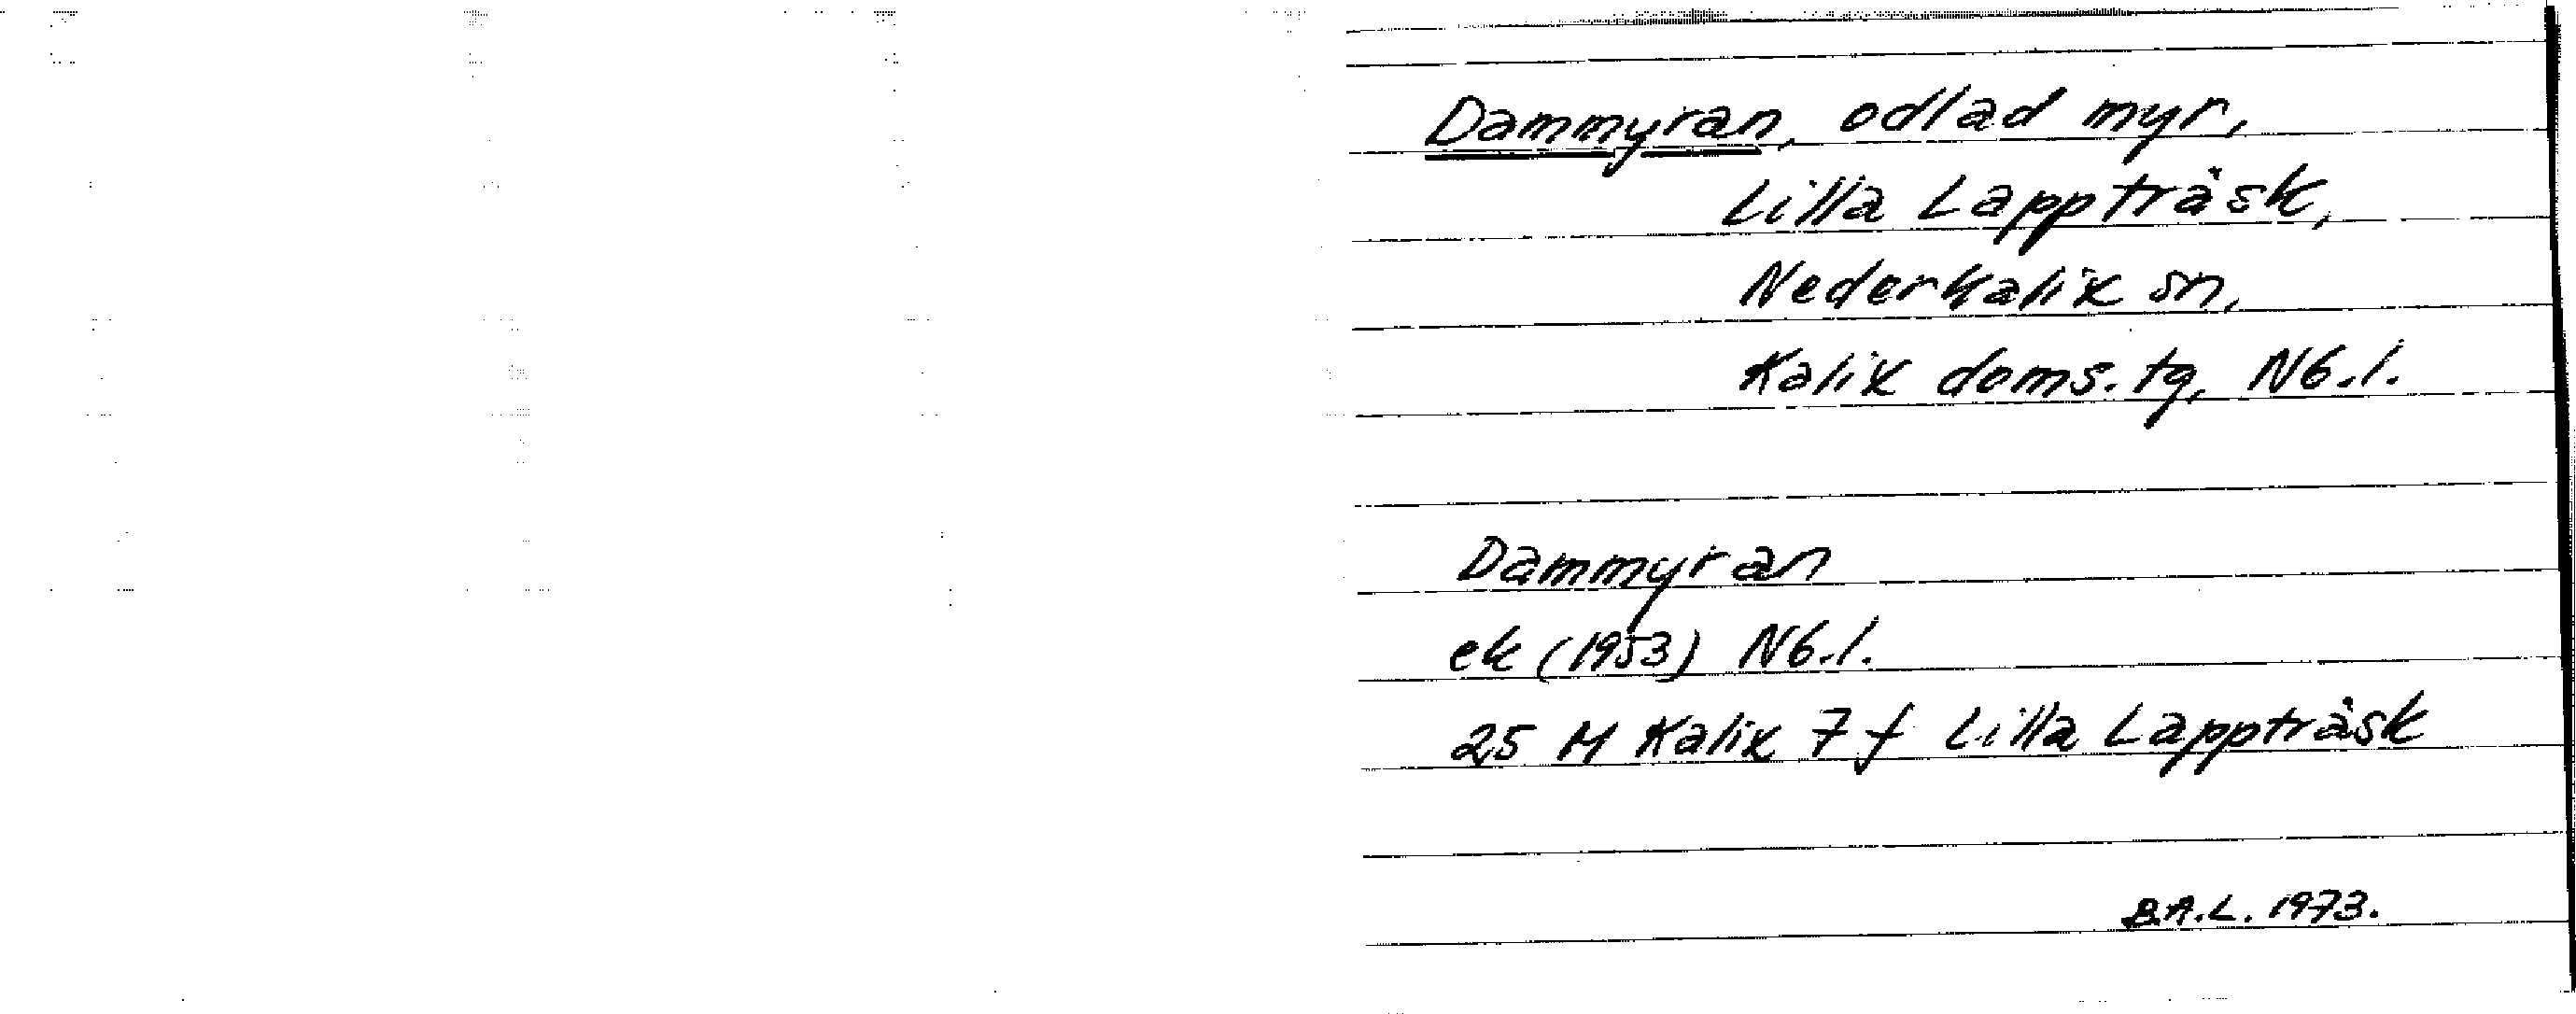 Dammyran, odlad myr,
Lilla Lappträsk,
Nederkalix sn,
Kalix doms. tg, Nb.l.
Dammyran
ek (1953) Nb.l.
25 M Kalix 7 f Lilla Lappträsk
B.A.L. 1973.